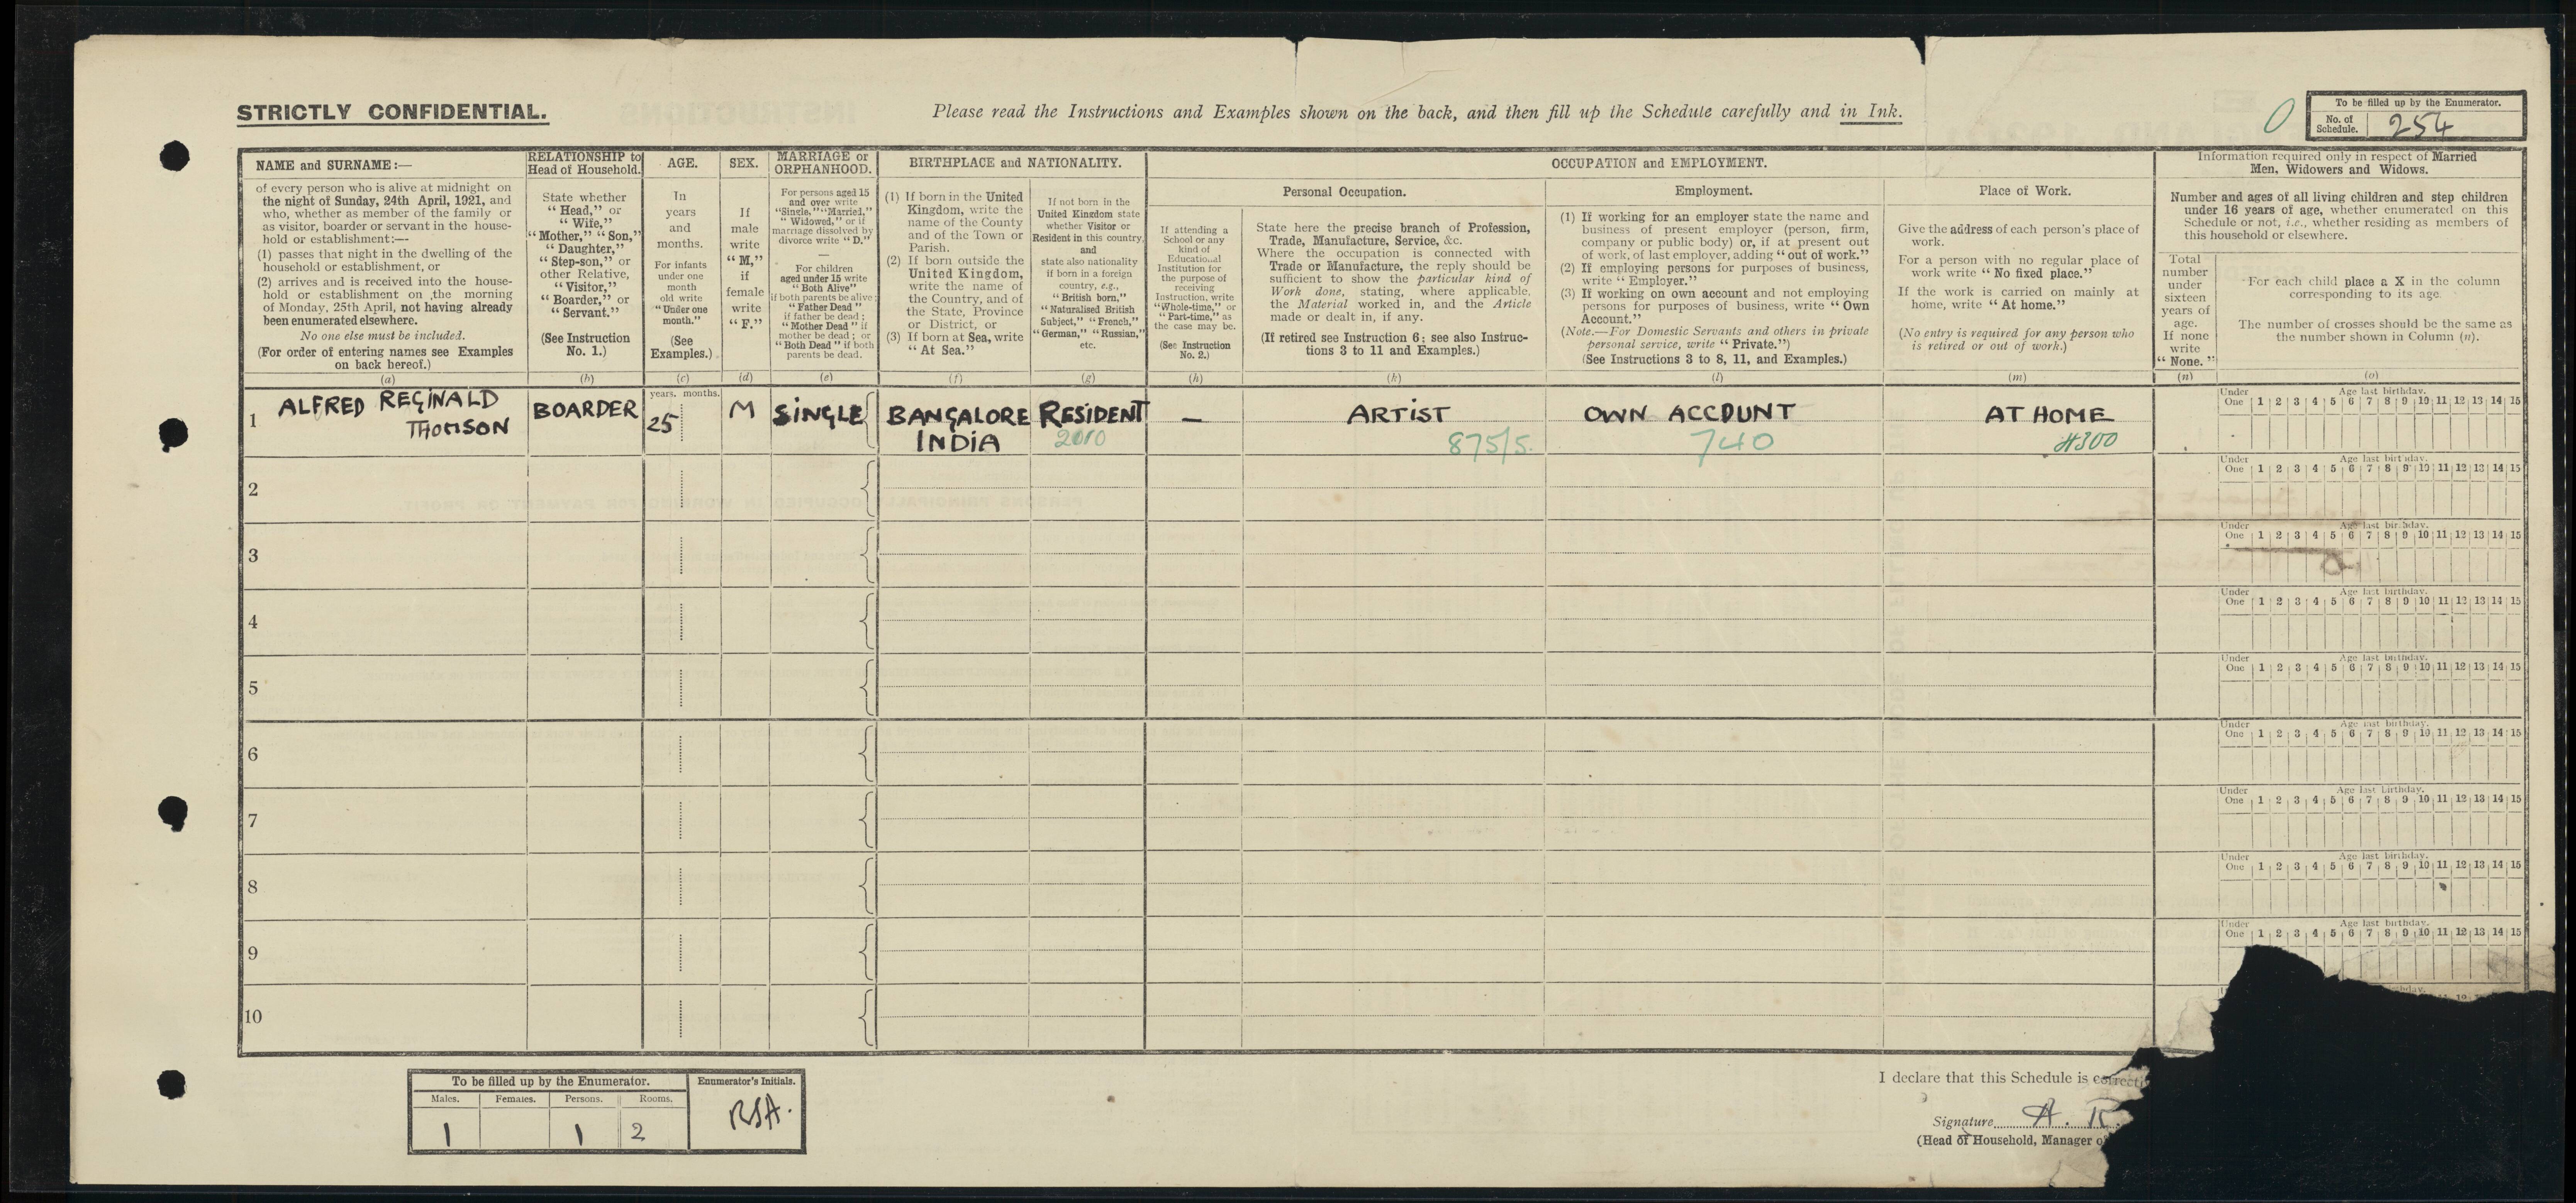 STRICTLY CONFIDENTIAL.
Please read the Instructions and Examples shown on the back, and then fill up the Schedule carefully and in Ink.
0
To be filled up by the Enumerator.
No. of Schedule. 254
NAME and SURNAME:—
of every person who is alive at midnight on
the night of Sunday, 24th April, 1921, and
who, whether as member of the family or
as visitor, boarder or servant in the house-
hold or establishment:—
(1) passes that night in the dwelling of the
household or establishment, or
(2) arrives and is received into the house-
hold or establishment on the morning
of Monday, 25th April, not having already
been enumerated elsewhere.
No one else must be included.
(For order of entering names see Examples
on back hereof.)
(a)
RELATIONSHIP to
Head of Household.
State whether
"Head," or
"Wife,"
"Mother," "Son,"
"Daughter,"
"Step-son," or
other Relative,
"Visitor,"
"Boarder," or
"Servant."
(See Instruction
No. 1.)
(b)
AGE.
In
years
and
months.
For infants
under one
month
old write
"Under one
month."
(See
Examples.)
(c)
SEX.
If
male
write
"M,"
if
female
write
"F."
(d)
MARRIAGE or
ORPHANHOOD.
For persons aged 15
and over write
"Single," "Married,"
"Widowed," or if
marriage dissolved by
divorce write "D."
—
For children
aged under 15 write
"Both Alive"
if both parents be alive;
"Father Dead"
if father be dead;
"Mother Dead" if
mother be dead; or
"Both Dead" if both
parents be dead.
(e)
BIRTHPLACE and NATIONALITY.
(1) If born in the United
Kingdom, write the
name of the County
and of the Town or
Parish.
(2) If born outside the
United Kingdom,
write the name of
the Country, and of
the State, Province
or District, or
(3) If born at Sea, write
"At Sea."
(f)
If not born in the
United Kingdom state
whether Visitor or
Resident in this country,
and
state also nationality
if born in a foreign
country, e.g.,
"British born,"
"Naturalised British
Subject," "French,"
"German," "Russian,"
etc.
(g)
OCCUPATION and EMPLOYMENT.
If attending a
School or any
kind of
Educational
Institution for
the purpose of
receiving
Instruction, write
"Whole-time," or
"Part-time," as
the case may be.
(See Instruction
No. 2.)
(h)
Personal Occupation.
State here the precise branch of Profession,
Trade, Manufacture, Service, &c.
Where the occupation is connected with
Trade or Manufacture, the reply should be
sufficient to show the particular kind of
Work done, stating, where applicable,
the Material worked in, and the Article
made or dealt in, if any.
(If retired see Instruction 6; see also Instruc-
tions 3 to 11 and Examples.)
(k)
Employment.
(1) If working for an employer state the name and
business of present employer (person, firm,
company or public body) or, if at present out
of work, of last employer, adding "out of work."
(2) If employing persons for purposes of business,
write "Employer."
(3) If working on own account and not employing
persons for purposes of business, write "Own
Account."
(Note.—For Domestic Servants and others in private
personal service, write "Private.")
(See Instructions 3 to 8, 11, and Examples.)
(l)
Place of Work.
Give the address of each person's place of
work.
For a person with no regular place of
work write "No fixed place."
If the work is carried on mainly at
home, write "At home."
(No entry is required for any person who
is retired or out of work.)
(m)
Information required only in respect of Married
Men, Widowers and Widows.
Number and ages of all living children and step children
under 16 years of age, whether enumerated on this
Schedule or not, i.e., whether residing as members of
this household or elsewhere.
Total
number
under
sixteen
years of
age.
If none
write
"None."
(n)
For each child place a X in the column
corresponding to its age.
The number of crosses should be the same as
the number shown in Column (n).
(o)
years. months.
1 ALFRED REGINALD THOMSON BOARDER 25 M SINGLE BANGALORE INDIA RESIDENT — ARTIST OWN ACCOUNT AT HOME
2010 875/5. 740 #300
Under One Age last birthday. 1 2 3 4 5 6 7 8 9 10 11 12 13 14 15
2 Under One Age last birthday. 1 2 3 4 5 6 7 8 9 10 11 12 13 14 15
3 Under One Age last birthday. 1 2 3 4 5 6 7 8 9 10 11 12 13 14 15
4 Under One Age last birthday. 1 2 3 4 5 6 7 8 9 10 11 12 13 14 15
5 Under One Age last birthday. 1 2 3 4 5 6 7 8 9 10 11 12 13 14 15
6 Under One Age last birthday. 1 2 3 4 5 6 7 8 9 10 11 12 13 14 15
7 Under One Age last birthday. 1 2 3 4 5 6 7 8 9 10 11 12 13 14 15
8 Under One Age last birthday. 1 2 3 4 5 6 7 8 9 10 11 12 13 14 15
9 Under One Age last birthday. 1 2 3 4 5 6 7 8 9 10 11 12 13 14 15
10
To be filled up by the Enumerator.
Males. Females. Persons. Rooms.
1 1 2
Enumerator's Initials.
RSA.
I declare that this Schedule is correct
Signature A. R.
(Head of Household, Manager o